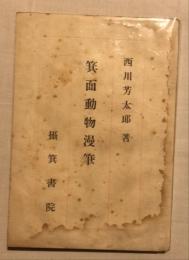 西川芳太郎著
箕面動物漫筆
攝箕書院